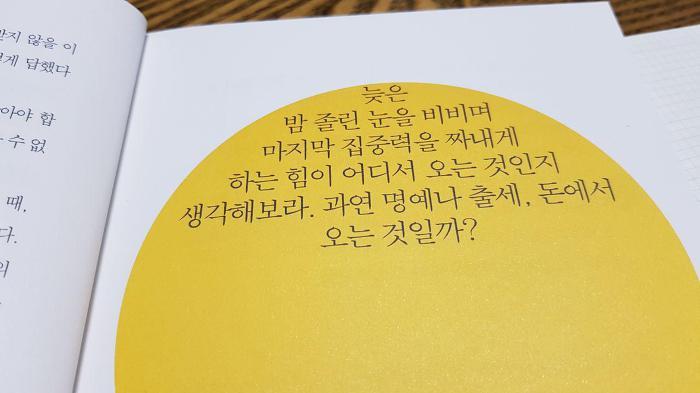 받지 않을 이
게 답했다
아야 합
수 없
때,
다.
의
늦은
밤 졸린 눈을 비비며
마지막 집중력을 짜내게
하는 힘이 어디서 오는 것인지
생각해보라. 과연 명예나 출세, 돈에서
오는 것일까?